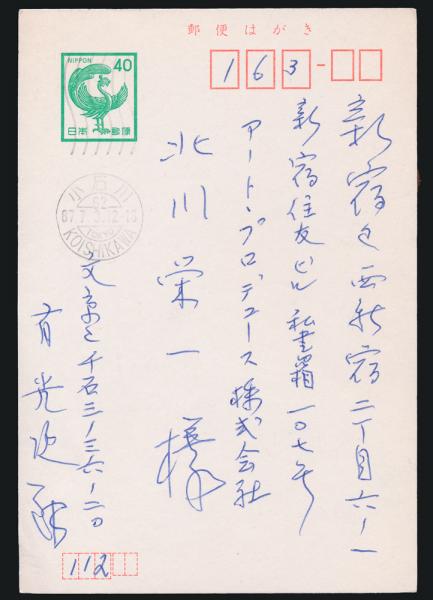 郵便はがき
NIPPON 40
日本郵便
163-
新宿区西新宿二丁目六ノ一
新宿住友ビル私書箱一〇七号
アート・プロデュース株式会社
北川栄一様
小石川
62
87.7.3.12-18
TOKYO
KOISHIKAWA
文京区千石三ノ三六ノ二〇
有光
112